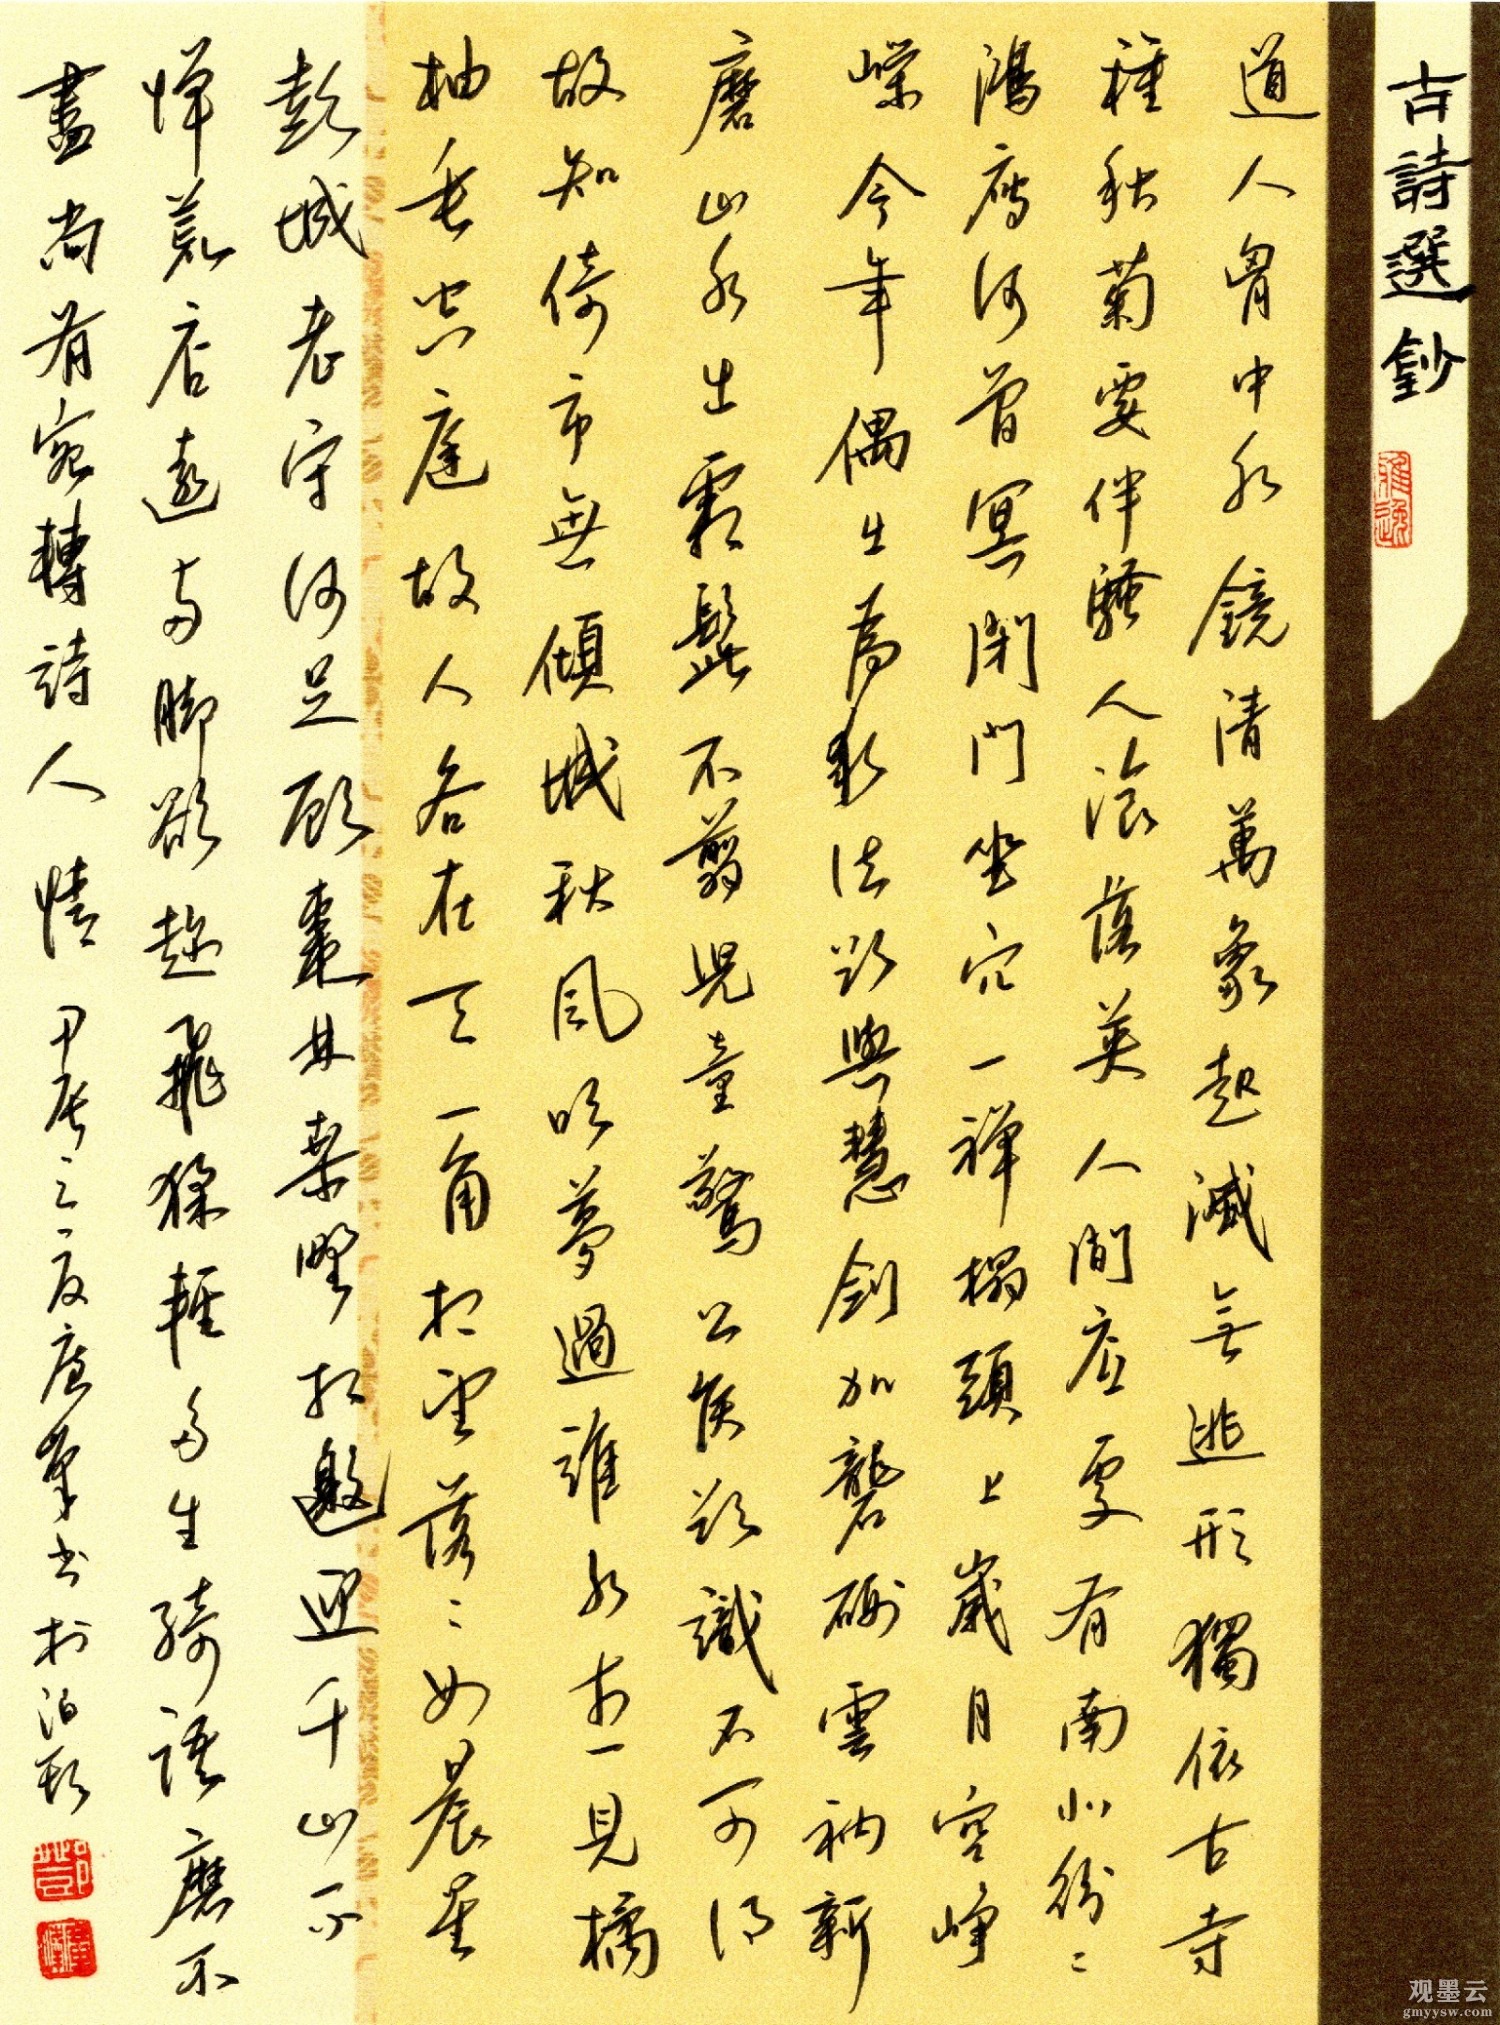 古詩選鈔
雅逸
道人胷中水鏡清萬象起滅無逃形獨依古寺
種秋菊要伴騷人湌落英人間底處有南北紛〻
鴻雁何曾冥閉門坐穴一禪榻頭上歲月空崢
嶸今年偶出為求法欲與慧劍加礱硎雲衲新
磨山水出霜髭不翦兒童驚公侯欲識不可得
故知倚市無傾城秋風吹夢過淮水想見橘
柚垂空庭故人各在天一角相望落〻如晨星
彭城老守何足顧棗林桑野相邀迎千山不
憚荒店遠兩脚欲趁飛猱輕多生綺語磨不
盡尚有宛轉詩人情 甲辰之夏書於泊頭
观墨云
gmyysw.com